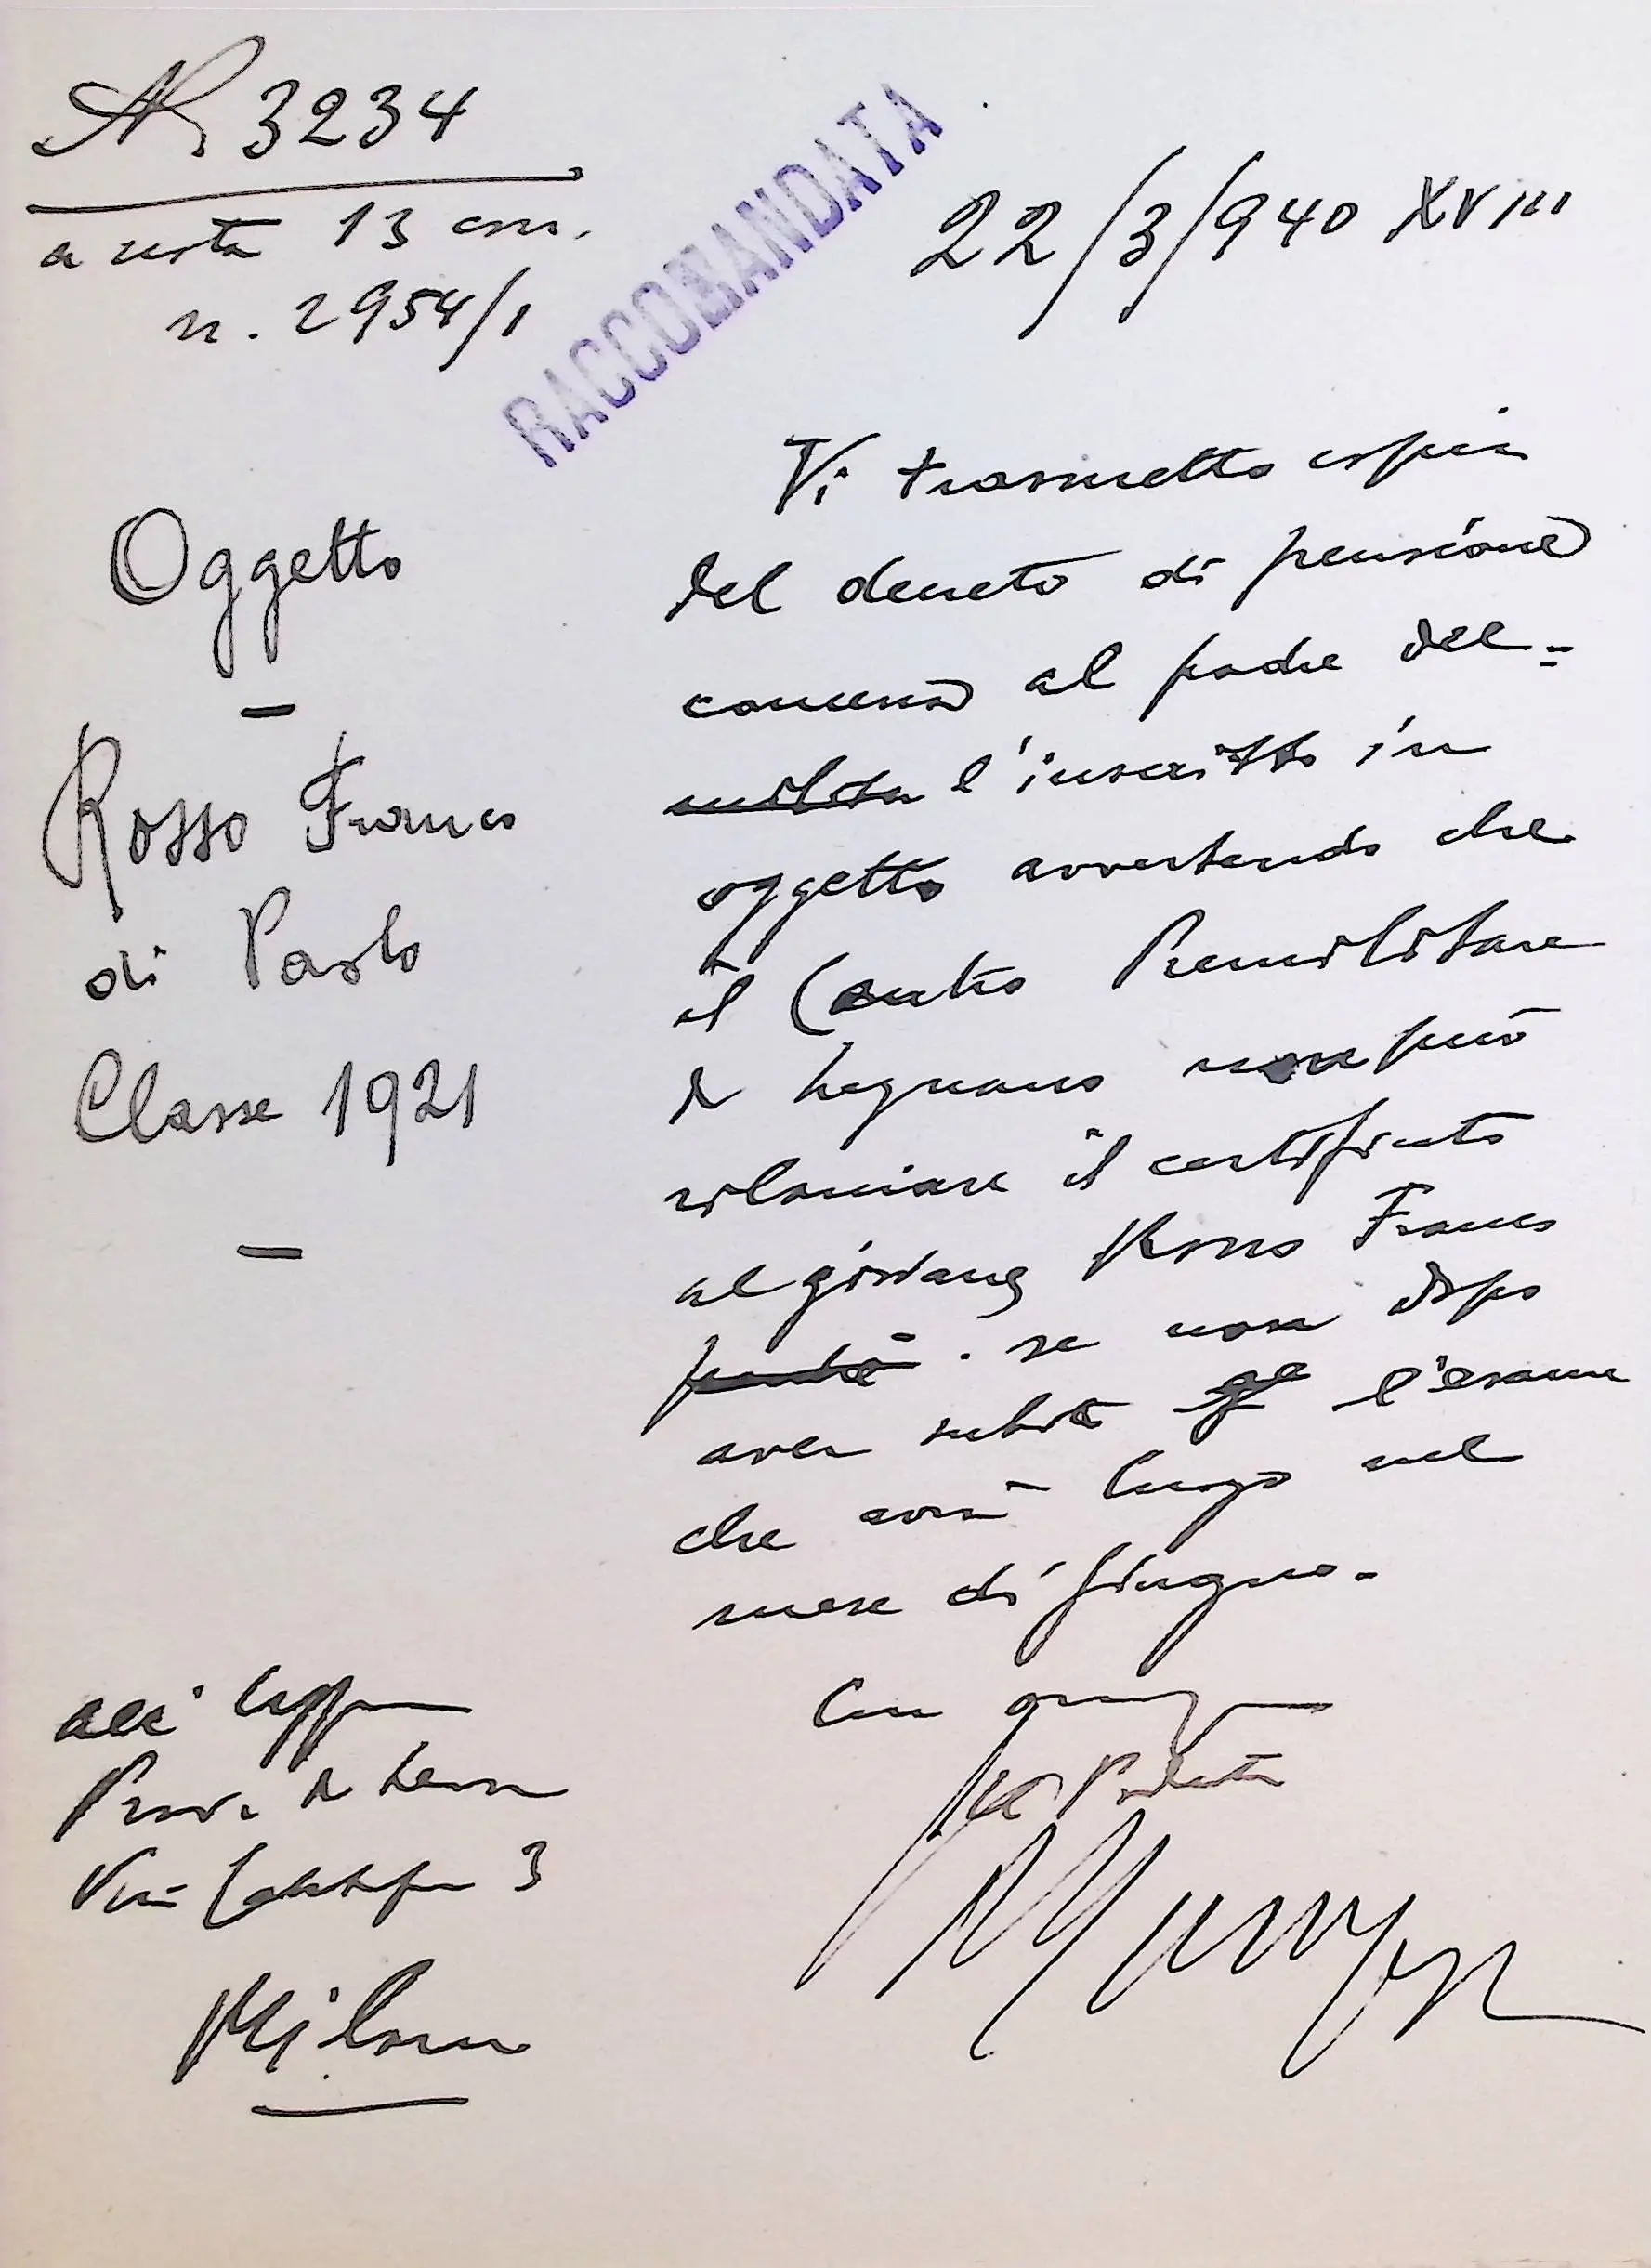 N 3234
a vista 13 corr.
n. 2954/1
RACCOMANDATA
22/3/940 XVIII
Oggetto
Rosso Franco
di Paolo
Classe 1921
Vi trasmetto copia
del decreto di pensione
concessa al padre del=
l'inscritto in
oggetto avvertendo che
il Centro Premilitare
di Legnano non può
rilasciare il certificato
al giovane Rosso Franco
se non dopo
aver subito l'esame
che avrà luogo nel
mese di Giugno.
Con
Il Podestà
All'
Prov. di Leva
Via 3
Milano